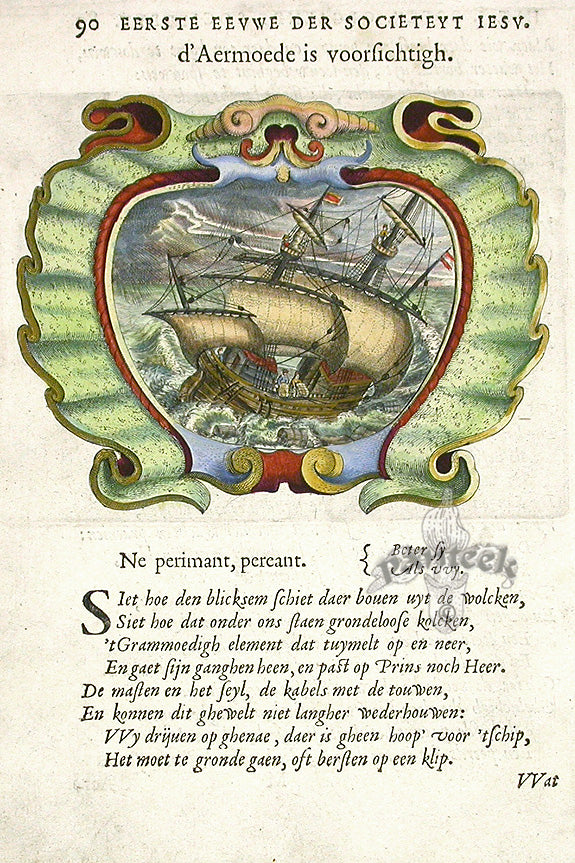 90 EERSTE EEVWE DER SOCIETEYT IESV.
d'Aermoede is voorſichtigh.
Ne perimant, pereant.
{ Beter ſy
Als vvy.
SIet hoe den blickſem ſchiet daer bouen uyt de wolcken,
Siet hoe dat onder ons ſtaen grondelooſe kolcken,
'tGrammoedigh element dat tuymelt op en neer,
En gaet ſijn ganghen heen, en paſt op Prins noch Heer.
De maſten en het ſeyl, de kabels met de touwen,
En konnen dit ghewelt niet langher wederhouwen:
VVy drijuen op ghenae, daer is gheen hoop' voor 'tſchip,
Het moet te gronde gaen, oft berſten op een klip.
VVat